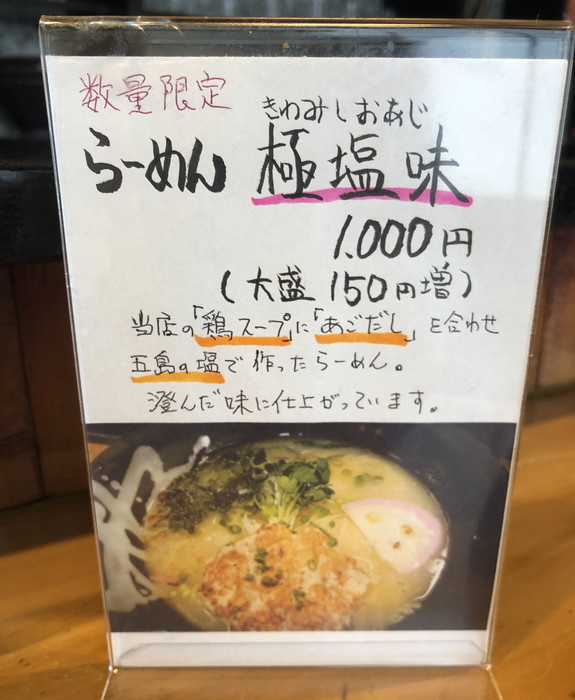 数量限定
きわみしおあじ
らーめん 極塩味
1.000円
(大盛 150円増)
当店の「鶏スープ」に「あごだし」を合わせ
五島の塩で作ったらーめん。
澄んだ味に仕上がっています。